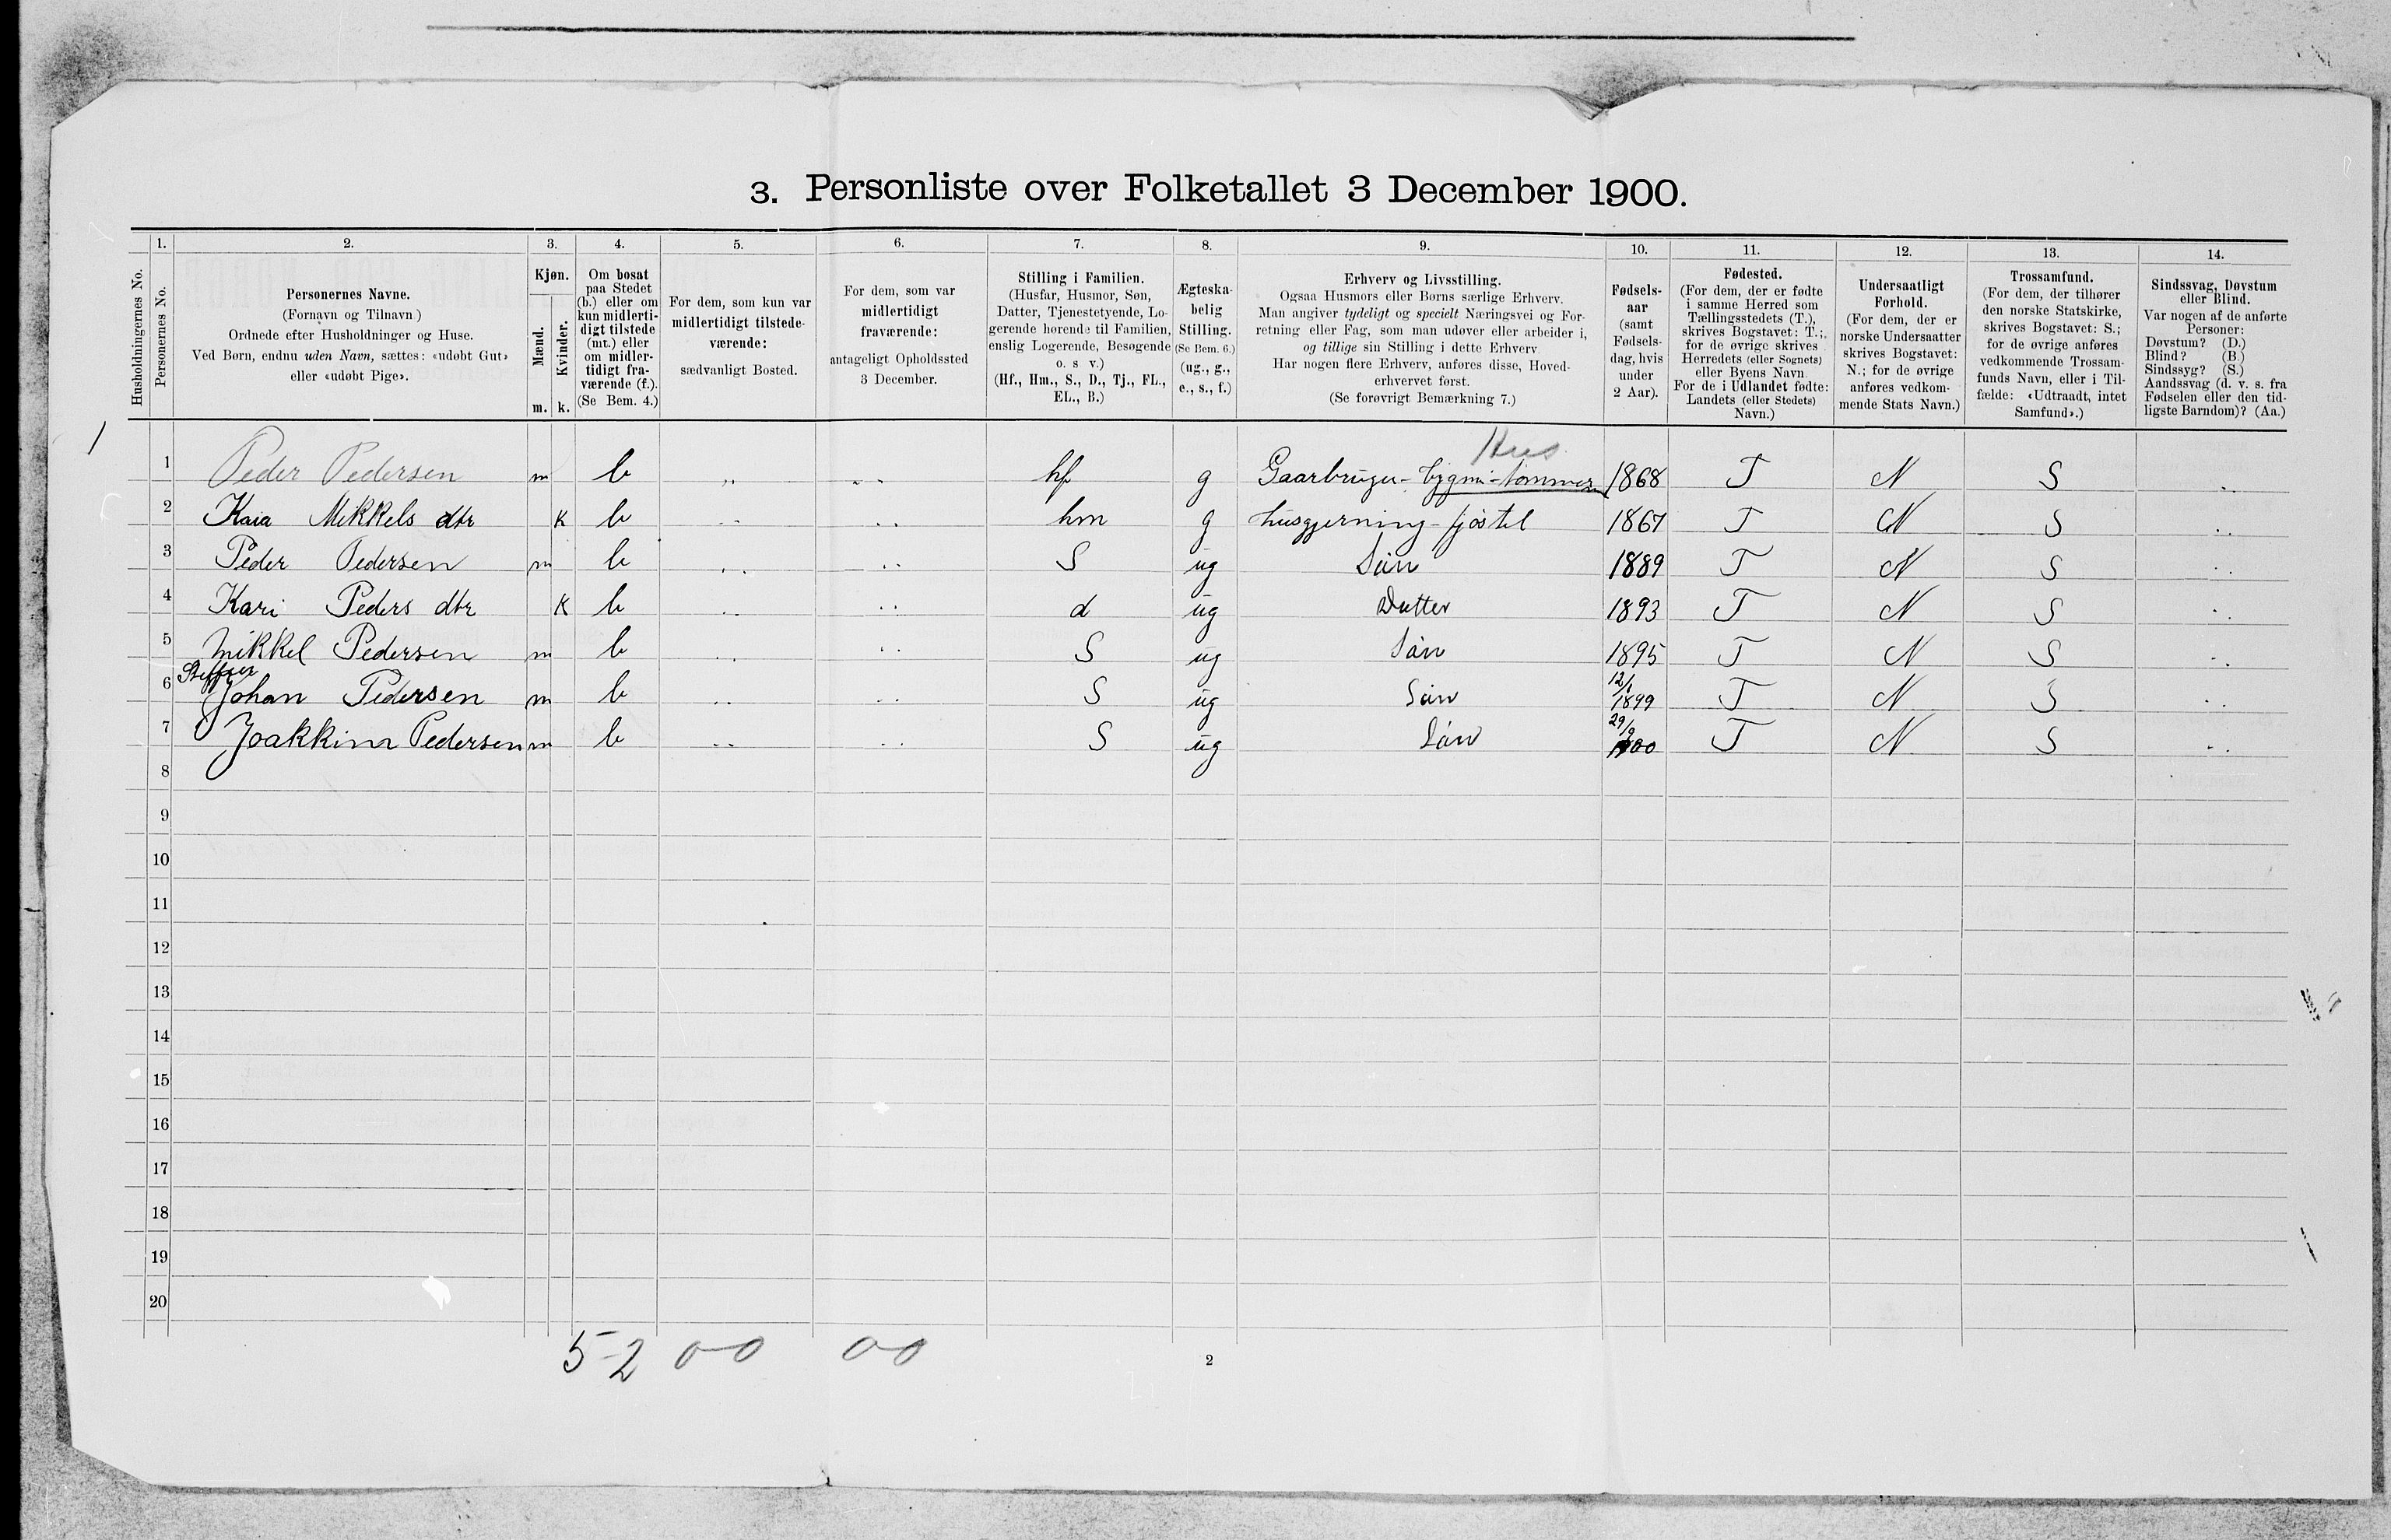 3. Personliste over Folketallet 3 December 1900.
1. 2. 3. 4. 5. 6. 7. 8. 9. 10. 11. 12. 13. 14.
Husholdningernes No.
Personernes No.
Personernes Navne.
(Fornavn og Tilnavn)
Ordnede efter Husholdninger og Huse.
Ved Børn, endnu uden Navn, sættes: «udøbt Gut»
eller «udøbt Pige».
Kjøn.
Mænd.
Kvinder.
m. k.
Om bosat
paa Stedet
(b.) eller om
kun midlerti-
digt tilstede
(mt.) eller
om midler-
tidigt fra-
værende (f.).
(Se Bem. 4.)
For dem, som kun var
midlertidigt tilstede-
værende:
sædvanligt Bosted.
For dem, som var
midlertidigt
fraværende:
antageligt Opholdssted
3 December.
Stilling i Familien.
(Husfar, Husmor, Søn,
Datter, Tjenestetyende, Lo-
gerende hørende til Familien,
enslig Logerende, Besøgende
o. s v.)
(Hf., Hm., S., D., Tj., FL.,
EL., B.)
Ægteska-
belig
Stilling.
(Se Bem. 6.)
(ug., g.,
e., s., f.)
Erhverv og Livsstilling.
Ogsaa Husmors eller Børns særlige Erhverv.
Man angiver tydeligt og specielt Næringsvei og For-
retning eller Fag, som man udøver eller arbeider i,
og tillige sin Stilling i dette Erhverv
Har nogen flere Erhverv, anføres disse, Hoved-
erhvervet først.
(Se forøvrigt Bemærkning 7.)
Fødsels-
aar
(samt
Fødsels-
dag, hvis
under
2 Aar).
Fødested.
(For dem, der er fødte
i samme Herred som
Tællingsstedets (T.),
skrives Bogstavet: T.;
for de øvrige skrives
Herredets (eller Sognets)
eller Byens Navn.
For de i Udlandet fødte:
Landets (eller Stedets)
Navn.)
Undersaatligt
Forhold.
(For dem, der er
norske Undersaatter
skrives Bogstavet:
N.; for de øvrige
anføres vedkom-
mende Stats Navn.)
Trossamfund.
(For dem, der tilhører
den norske Statskirke,
skrives Bogstavet: S.;
for de øvrige anføres
vedkommende Trossam-
funds Navn, eller i Til-
fælde: «Udtraadt, intet
Samfund».)
Sindssvag, Døvstum
eller Blind.
Var nogen af de anførte
Personer:
Døvstum? (D.)
Blind? (B.)
Sindssyg? (S.)
Aandssvag (d. v. s. fra
Fødselen eller den tid-
ligste Barndom)? (Aa.)
Hus
1 1 Peder Pedersen m b hf g Gaarbruger- 1868 T N S
2 Kaia Mikkels dtr K b hm g husgjerning- fjøstel 1867 T N S
3 Peder Pedersen m b S ug Søn 1889 T N S
4 Kari Peders dtr K b d ug Datter 1893 T N S
5 Mikkel Pedersen m b S ug Søn 1895 T N S
6 Johan Pedersen m b S ug Søn 12/1 1899 T N S
7 Joakkim Pedersen m b S ug Søn 29/9 1900 T N S
8
9
10
11
12
13
14
15
16
17
18
19
20
5-2 0-0 0-0
2